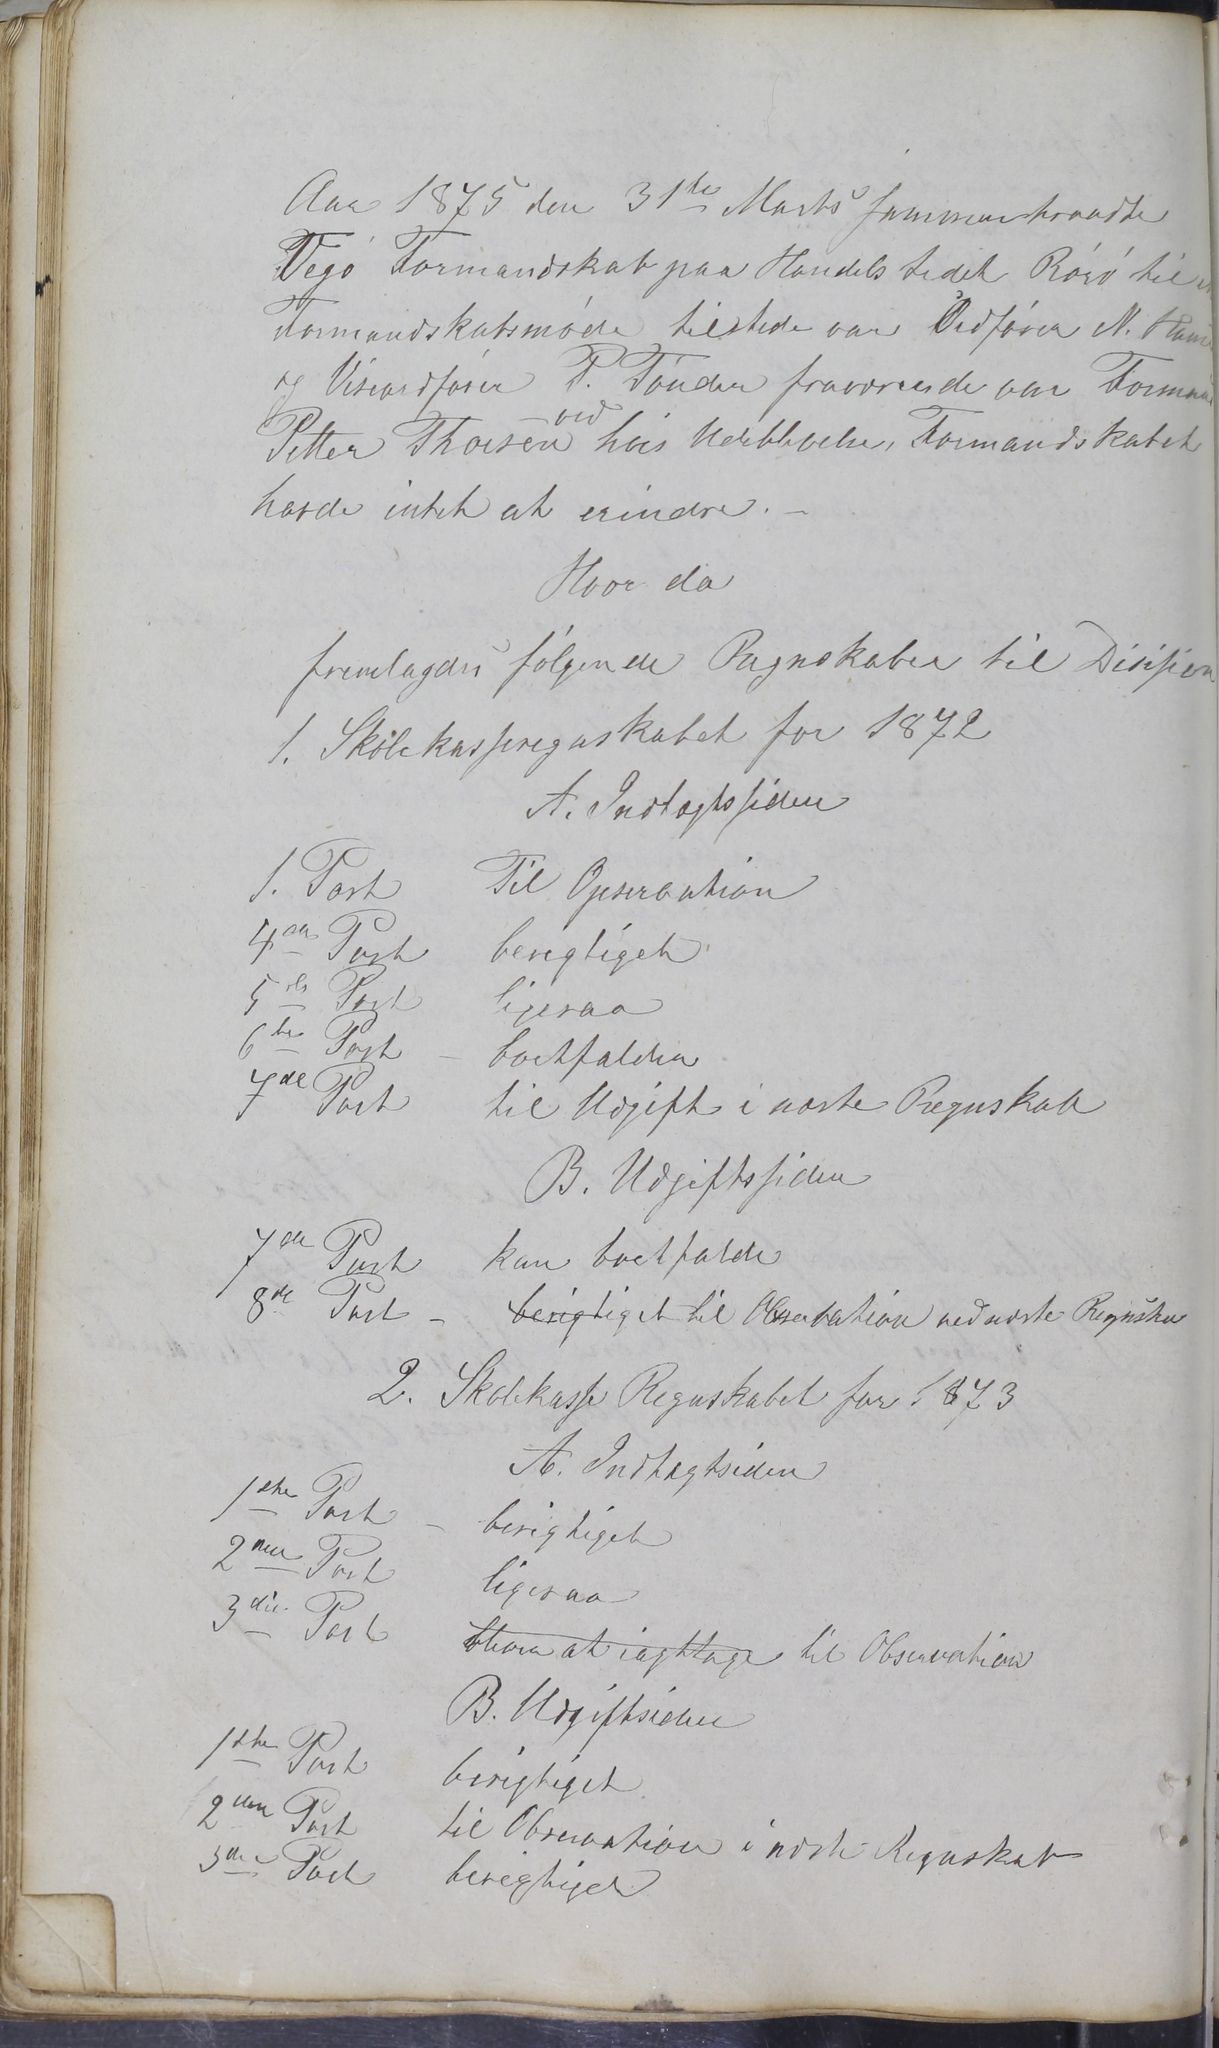 Aar 1875 den 31te Marts sammentraadte
Vegø Formandskab paa Handelstedet Rørø til
Formandskabsmøde tilstede var Ordfører N.
og Viseordfører P. Tønder fraværende var
Petter Thorsen ved hvis Udeblivelse, Formandskabet
havde intet at erindre. –
Hvor da
fremlagdes følgende Regnskaber til Disision
1. Skolekasseregnskabet for 1872
A. Indtægtssiden
1. Post Til Opservation
4de Post berigtiget
5te Post ligesaa
6te Post – bortfalder
7de Post til Udgift i næste Regnskab
B. Udgiftssiden
7de Post kan bortfalde
8de Post – berigtiget til Observation ved næste
2. Skolekasse Regnskabet for 1873
A. Indtægtsiden
1ste Post – berigtiget
2den Post ligesaa
3die Post at iagttage til Observation
B. Udgiftsiden
1ste Post berigtiget
2den Post til Observation i næste Regnskab
3die Post berigtiget